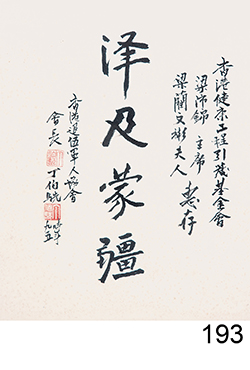 香港健康工程引發基金會
梁沛錦 主席
梁蘭文彬夫人 惠存
泽及蒙疆
香港退伍軍人協會
會長 丁伯駪
九五
193